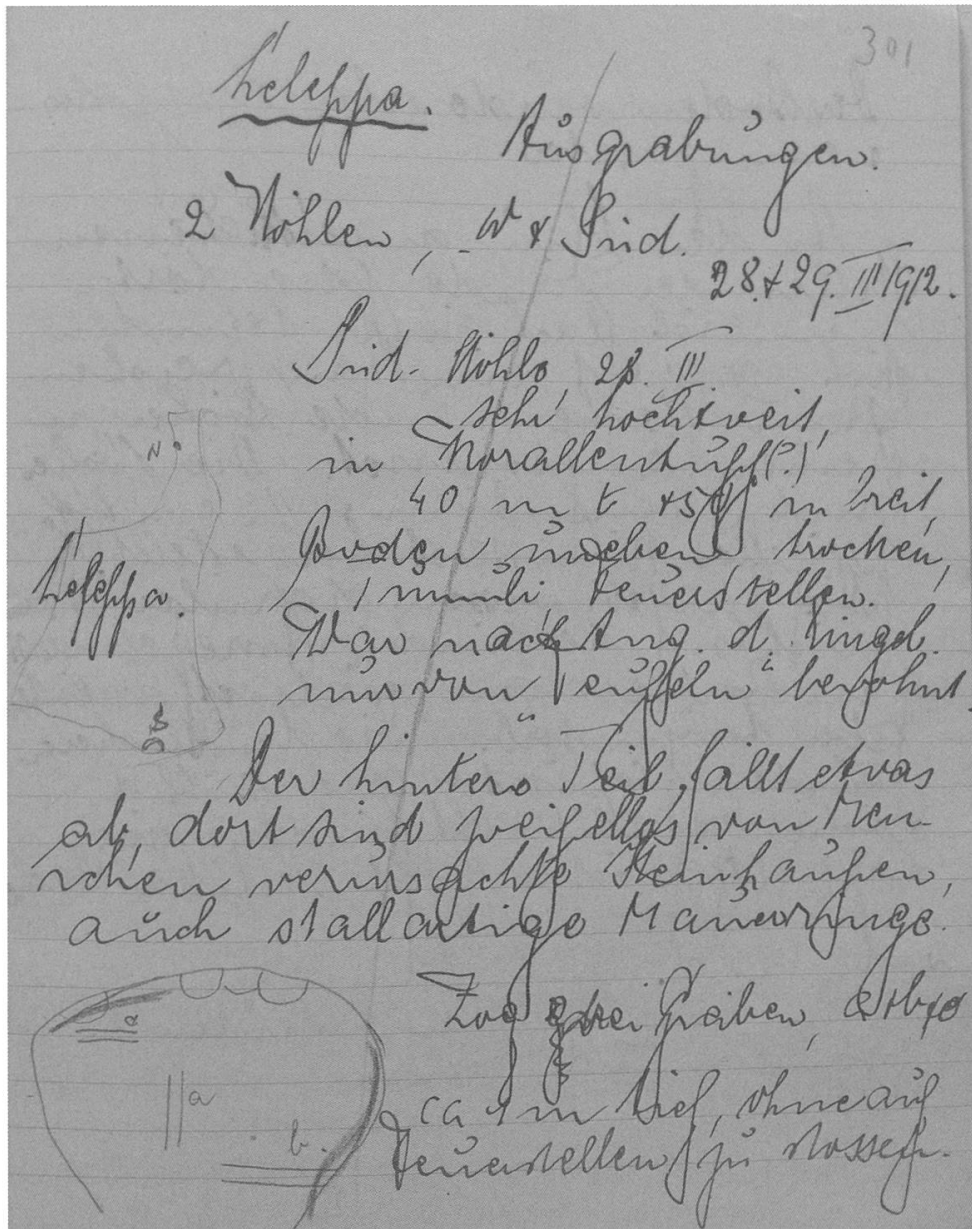 301
Leleppa.
Ausgrabungen.
2 Höhlen, W + Süd.
28.+29. III 1912.
Süd-Höhle, 28. III.
sehr hoch + weit,
in Korallentuff(?)
40 m t + 50 m breit,
Boden uneben, trocken,
Feuerstellen.
War nach Ang. d. Eingeb.
nur von „Teufeln“ bewohnt.
N
Leleppa.
Der hintere Teil fällt etwas
ab, dort sind zweifellos von Men-
schen verursachte Steinhaufen,
auch stallartige Mauerringe.
Zog drei Gräben, a+b+c
ca 1 m tief, ohne auf
Feuerstellen zu stossen.
a
b.